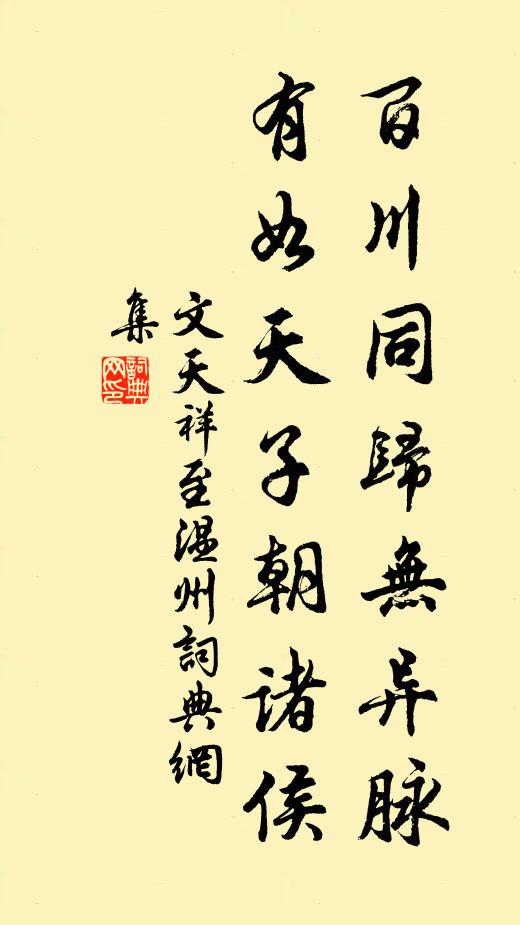 百川同歸無异脉
有如天子朝諸侯
文天祥至温州詞典網
集
詞典
网印